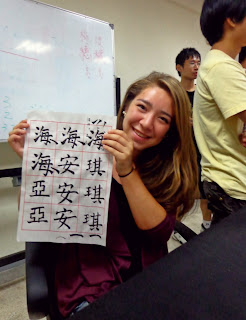 海海海
海安琪
亞安琪
亞安琪